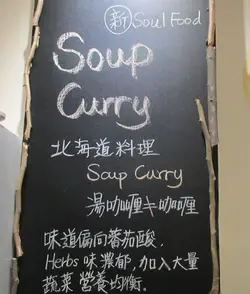 新 Soul Food
Soup
Curry
北海道料理
Soup Curry
湯咖喱≠咖喱
味道偏向蕃茄酸,
Herbs 味濃郁, 加入大量
蔬菜 營養均衡.